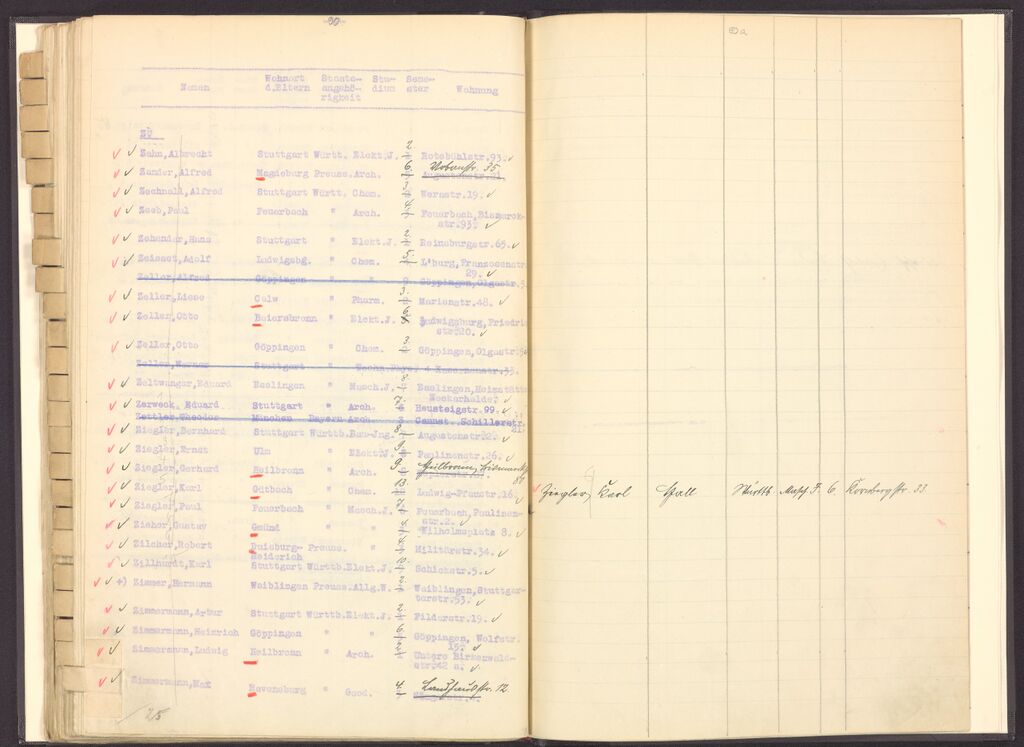 90
Wohnort Staats- Stu- Seme-
Namen d.Eltern angehö- dium ster Wohnung
rigkeit
Zahn, Albrecht Stuttgart Württ. Elekt.J. 2 Rotebühlstr.93.
Zander, Alfred Magdeburg Preuss. Arch. 6. Urbanstr. 35.
Zechnall, Alfred Stuttgart Württ. Chem. 3 Wernstr.19.
Zeeb, Paul Feuerbach " Arch. 4. Feuerbach, Bismarck-
str.93.
Zehender, Hans Stuttgart " Elekt.J. 2 Reinsburgstr.65.
Zeisset, Adolf Ludwigsbg. " Chem. 5. L'burg, Franzosenstr.
29.
Zeller, Alfred Göppingen " " Göppingen, Olgastr.
Zeller, Liese Calw " Pharm. 3. Marienstr.48.
Zeller, Otto Baiersbronn " Elekt.J. 6. Ludwigsburg, Friedri
str.20.
Zeller, Otto Göppingen " Chem. 3 Göppingen, Olgastr
Zeller, Stuttgart " 4 Kasernenstr.35.
Zeltwanger, Eduard Esslingen " Masch.J. 8. Esslingen, Heimstätte
Neckarhalde,
Zerweck, Eduard Stuttgart " Arch. 7. Hausteigstr.99.
Zettler, Theodor München Bayern Arch. 3 Cannst. Schillerstr.
21.
Ziegler, Bernhard Stuttgart Württb. Bau-Jng. 8. Augustenstr.22.
Ziegler, Ernst Ulm " Elekt.J. 9. Paulinenstr.26.
Ziegler, Gerhard Heilbronn " Arch. 9. Heilbronn,
Ziegler, Karl Gütbach " Chem. 13. Ludwig-Pfaustr.16.
Ziegler, Karl Hall Württb. Masch.J. 6. Kornbergstr. 33.
Ziegler, Paul Feuerbach " Masch.J. 7. Feuerbach, Paulinen-
str.2.
Zieher, Gustav Gmünd " " 4. Wilhelmsplatz 8.
Zilcher, Robert Duisburg- Preuss. " 4. Militärstr.34.
Beiderich
Zillhardt, Karl Stuttgart Württb. Elekt.J. 10. Schickstr.5.
+) Zimmer, Hermann Waiblingen Preuss. Allg.W. 2 Waiblingen, Stuttgar-
terstr.53.
Zimmermann, Artur Stuttgart Württb. Elekt.J. 2 Filderstr.19.
Zimmermann, Heinrich Göppingen " " 6. Göppingen, Wolfstr.
15.
Zimmermann, Ludwig Heilbronn " Arch. 2 Untere Birkenwald-
str.42 a.
Zimmermann, Max Ravensburg " Geod. 4. Landhausstr. 12.
/25